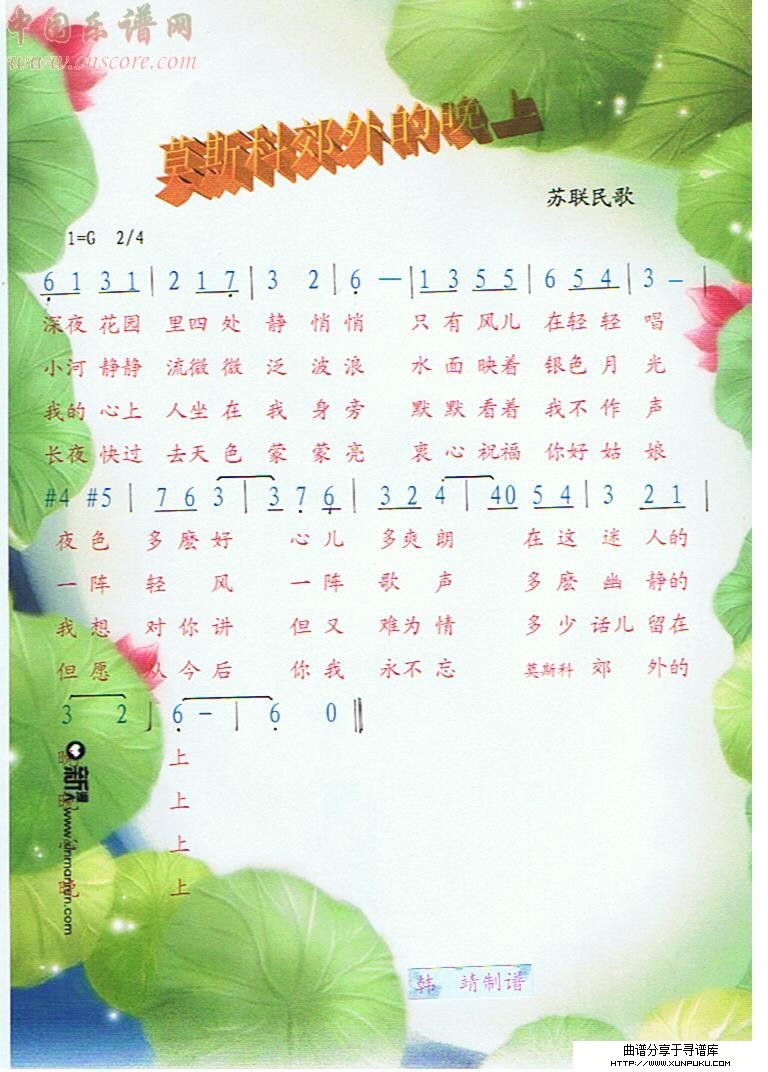 中国乐谱网
www.cnscore.com
莫斯科郊外的晚上
苏联民歌
1=G 2/4
6 1 3 1 | 2 1 7 | 3 2 | 6 — | 1 3 5 5 | 6 5 4 | 3 — |
深夜 花园 里四 处 静 悄悄 只有 风儿 在轻 轻 唱
小河 静静 流微 微 泛 波浪 水面 映着 银色 月 光
我的 心上 人坐 在 我 身旁 默默 看着 我不 作 声
长夜 快过 去天 色 蒙 蒙亮 衷心 祝福 你好 姑 娘
#4 #5 | 7 6 3 | 3 7 6 | 3 2 4 | 40 5 4 | 3 2 1 |
夜色 多麽好 心儿 多爽朗 在这 迷 人的
一阵 轻 风 一阵 歌 声 多麽 幽 静的
我想 对你讲 但又 难为情 多少 话儿 留在
但愿 从今后 你我 永不忘 莫斯科 郊 外的
3 2 | 6 — | 6 0 ‖
上
上
上
上
韩 靖制谱
曲谱分享于寻谱库
HTTP://WWW.XUNPUKU.COM